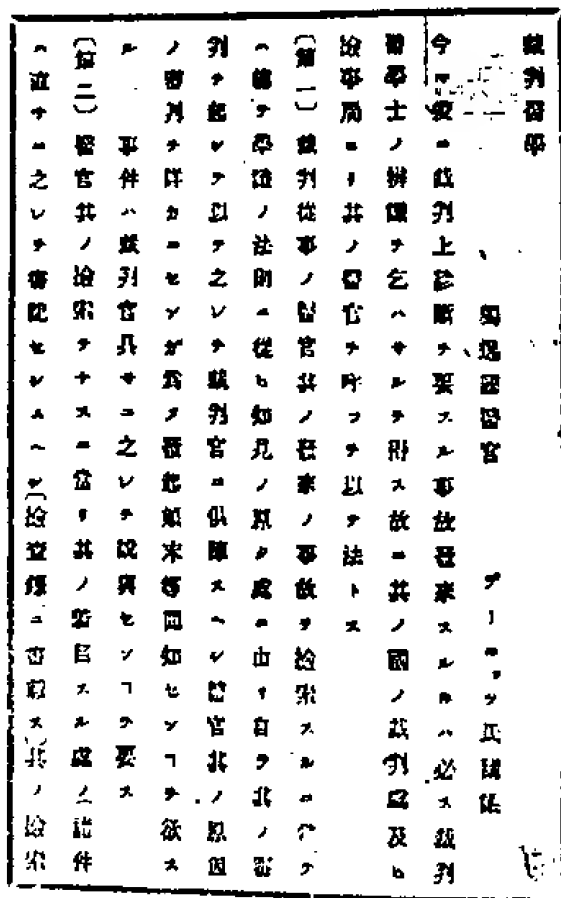 裁判醫學
獨逸國醫官 デーニッツ氏講述
今マ爰ニ裁判上診斷ヲ要スル事故發來スルヰハ必ス裁判
醫學士ノ辨償ヲ乞ハサルヲ得ス故ニ其ノ國ノ裁判處及ヒ
檢事局ヨリ其ノ醫官ヲ呼フヲ以テ法トス
(第一)裁判從事ノ醫官其ノ發來ノ事故ヲ檢索スルニ
ハ總テ學證ノ法則ニ從ヒ如見ノ原タ處ニ由リ自ラ其ノ審
判ヲ起シテ以テ之レヲ裁判官ニ供陳スヘシ醫官其ノ原因
ノ審判ヲ詳カニセンガ爲タ發起顛末等問知センヿヲ欲ス
ル 事件ハ裁判官具サニ之レヲ說與センヿヲ要ス
(第二)醫官其ノ檢索ヲナスニ當リ其ノ著目スル處ノ諸件
ハ直チニ之レヲ書記セシムヘシ(檢查錄ニ書載ス)其ノ檢索